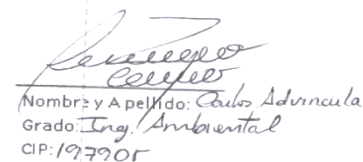 Nombre y Apellido: Carlos Advincula
Grado: Ing. Ambiental
CIP: 197905